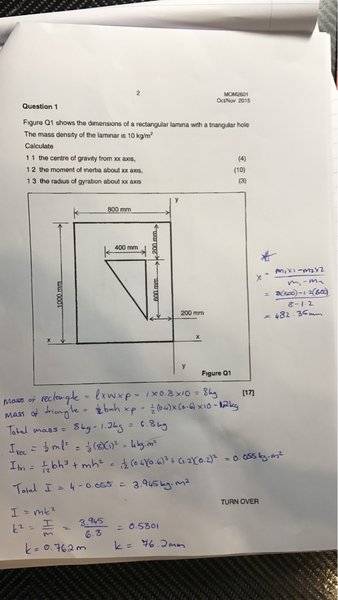 2
MOM2601
Oct/Nov 2015
Question 1
Figure Q1 shows the dimensions of a rectangular lamina with a triangular hole
The mass density of the laminar is 10 kg/m²
Calculate
1 1 the centre of gravity from xx axis, (4)
1 2 the moment of inertia about xx axis, (10)
1 3 the radius of gyration about xx axis (3)
y
800 mm
400 mm
200 mm
1000 mm
600 mm
200 mm
x x
y
Figure Q1
[17]
x = m₁x₁ - m₂x₂
m₁ - m₂
= 8(500) - 1.2(600)
8 - 1.2
= 482.35mm
Mass of rectangle = l x w x ρ = 1 x 0.8 x 10 = 8kg
Mass of triangle = ½bh x ρ = ½(0.4)x(0.6)x10 = 1.2kg
Total mass = 8kg - 1.2kg = 6.8kg
I rec = ⅓ml² = ⅓(8)(1)² = 4kg.m²
I tri = 1/12 bh³ + mh² = 1/12 (0.4)(0.6)³ + (1.2)(0.2)² = 0.055kg.m²
Total I = 4 - 0.055 = 3.945kg.m²
TURN OVER
I = mk²
k² = I/m = 3.945/6.8 = 0.5801
k = 0.762m k = 76.2mm